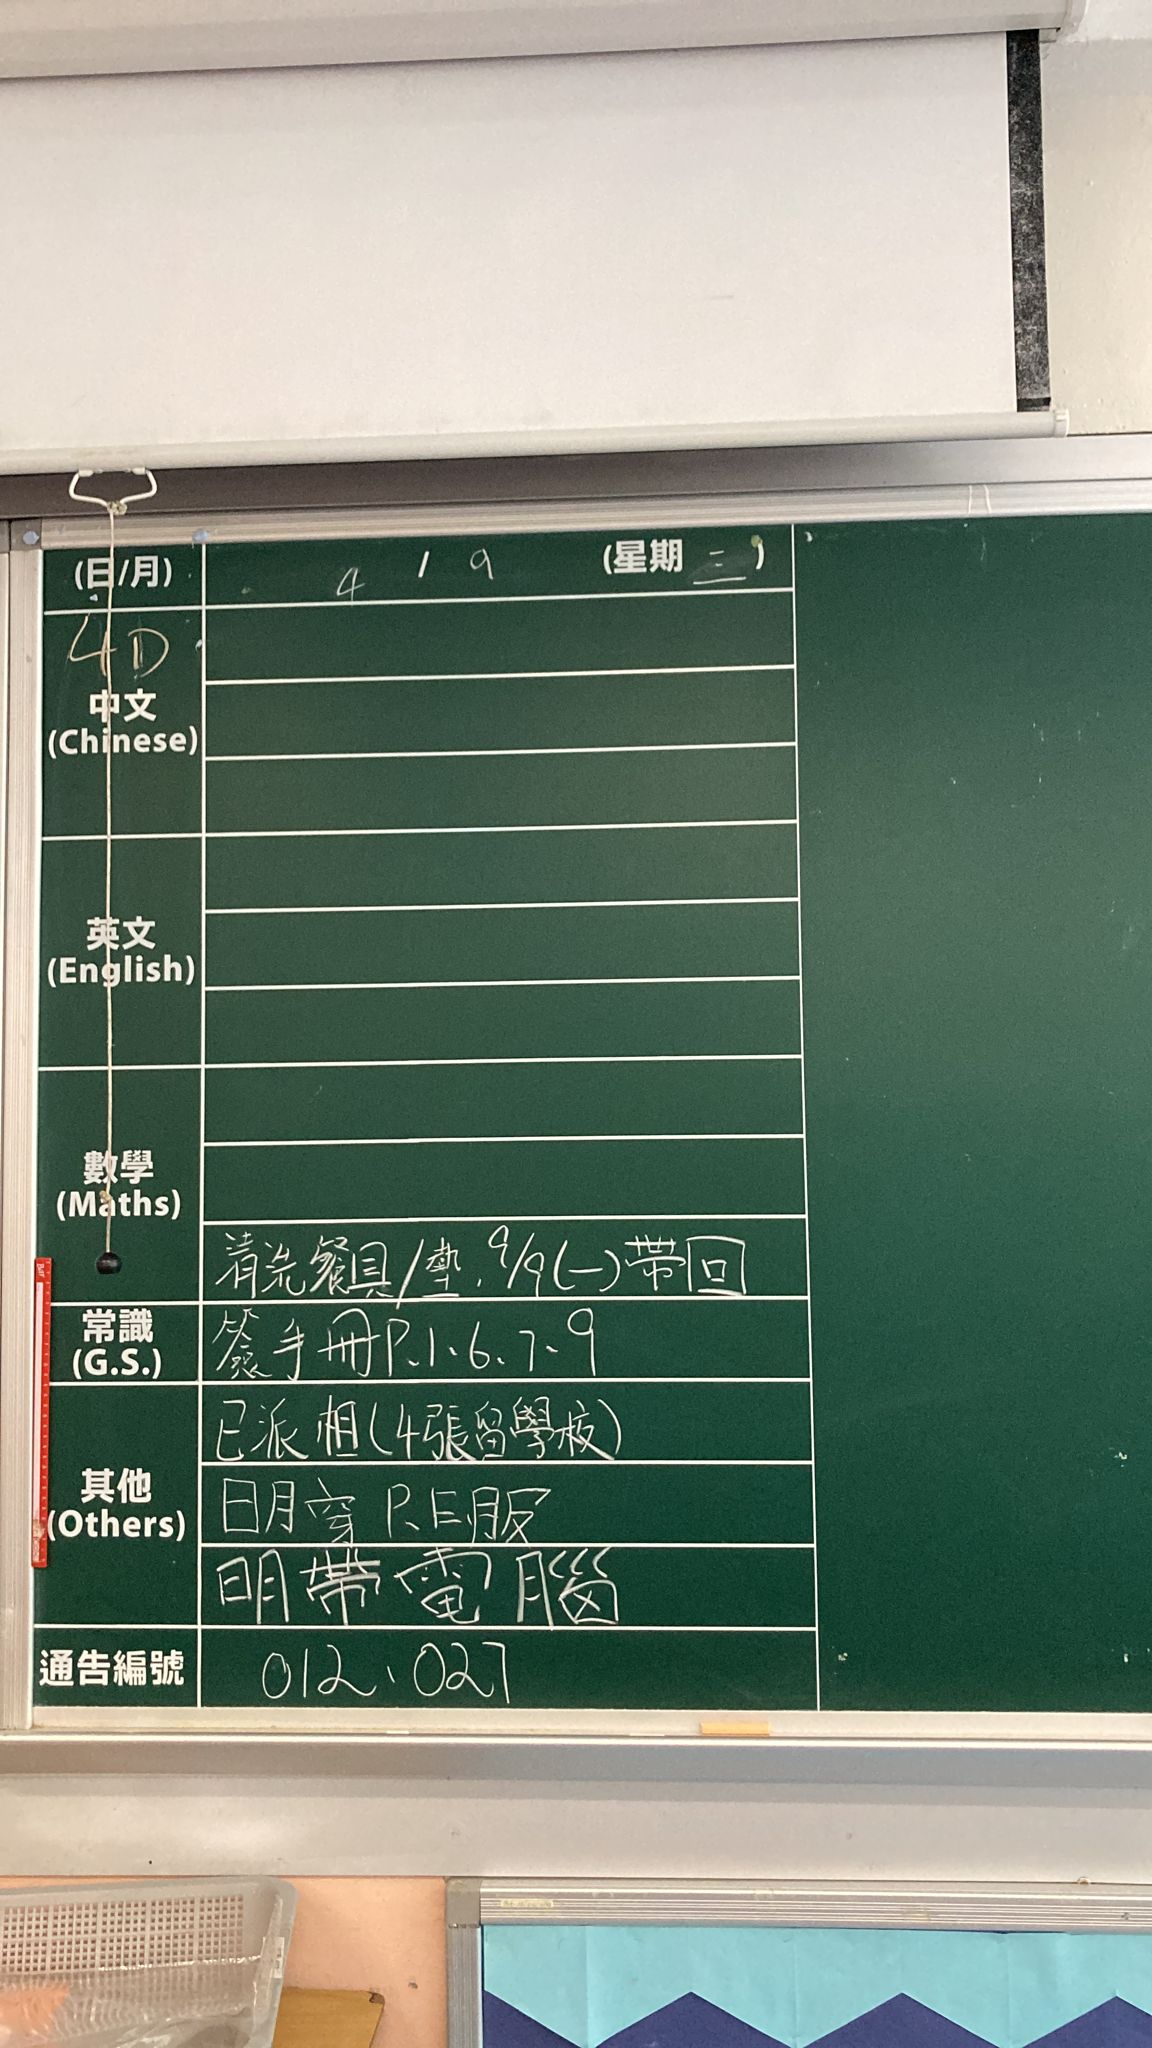 (日/月) 4 / 9 (星期三)
4D
中文
(Chinese)
英文
(English)
數學
(Maths)
清洗餐具/墊、9/9(一)帶回
常識
(G.S.)
簽手冊P.1、6、7、9
已派相(4張留學校)
其他
(Others)
明穿P.E服
明帶電腦
通告編號
012、027